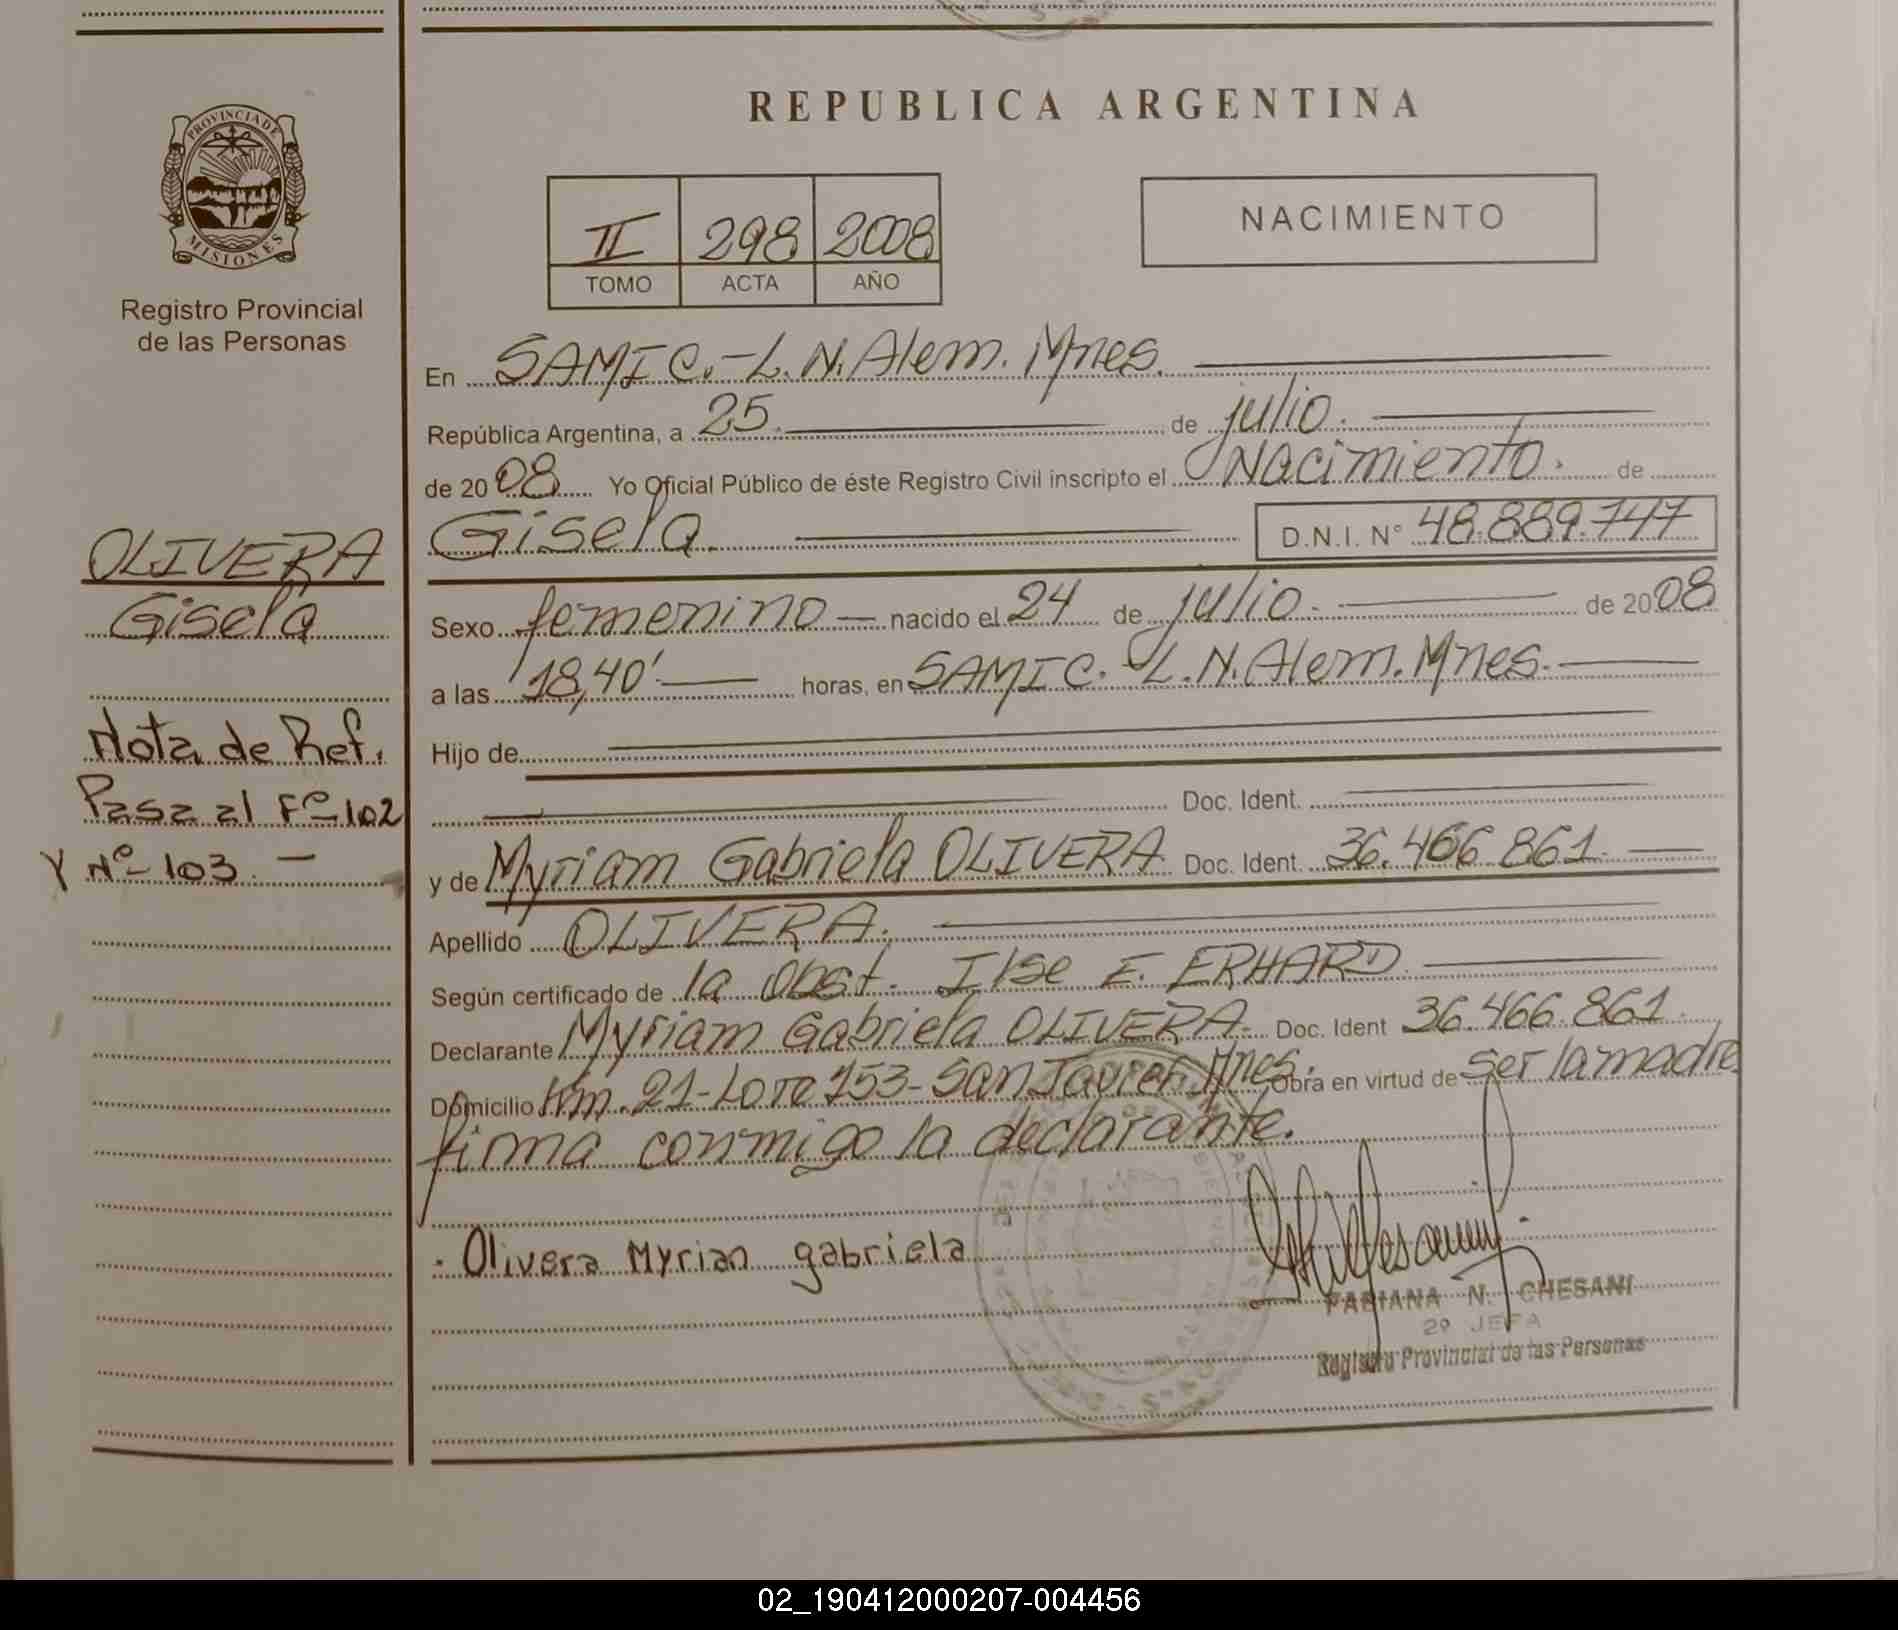 REPUBLICA ARGENTINA
PROVINCIA DE
MISIONES
Registro Provincial
de las Personas
II 298 2008
TOMO ACTA AÑO
NACIMIENTO
En SAMIC.-L.N.Alem.Mnes.
República Argentina, a 25. de julio.
de 2008 Yo Oficial Público de éste Registro Civil inscripto el Nacimiento. de
Gisela. D.N.I. N° 48.889.747
OLIVERA
Gisela
Sexo femenino — nacido el 24 de julio. de 2008
a las 18,40' horas, en SAMIC.-L.N.Alem.Mnes.
Nota de Ref.
Pasa al Fº-102
Y Nº-103 —
Hijo de
Doc. Ident.
y de Myriam Gabriela OLIVERA Doc. Ident. 36.466 861.
Apellido OLIVERA.
Según certificado de la Obst. Ilse E. ERHARD
Declarante Myriam Gabriela OLIVERA. Doc. Ident 36.466.861
Domicilio Km.21-Lote 153-San Javier Mnes. Obra en virtud de ser la madre.
firma conmigo la declarante.
Olivera Myrian gabriela
FABIANA N. CHESANI
2º JEFA
Registro Provincial de las Personas
02_190412000207-004456